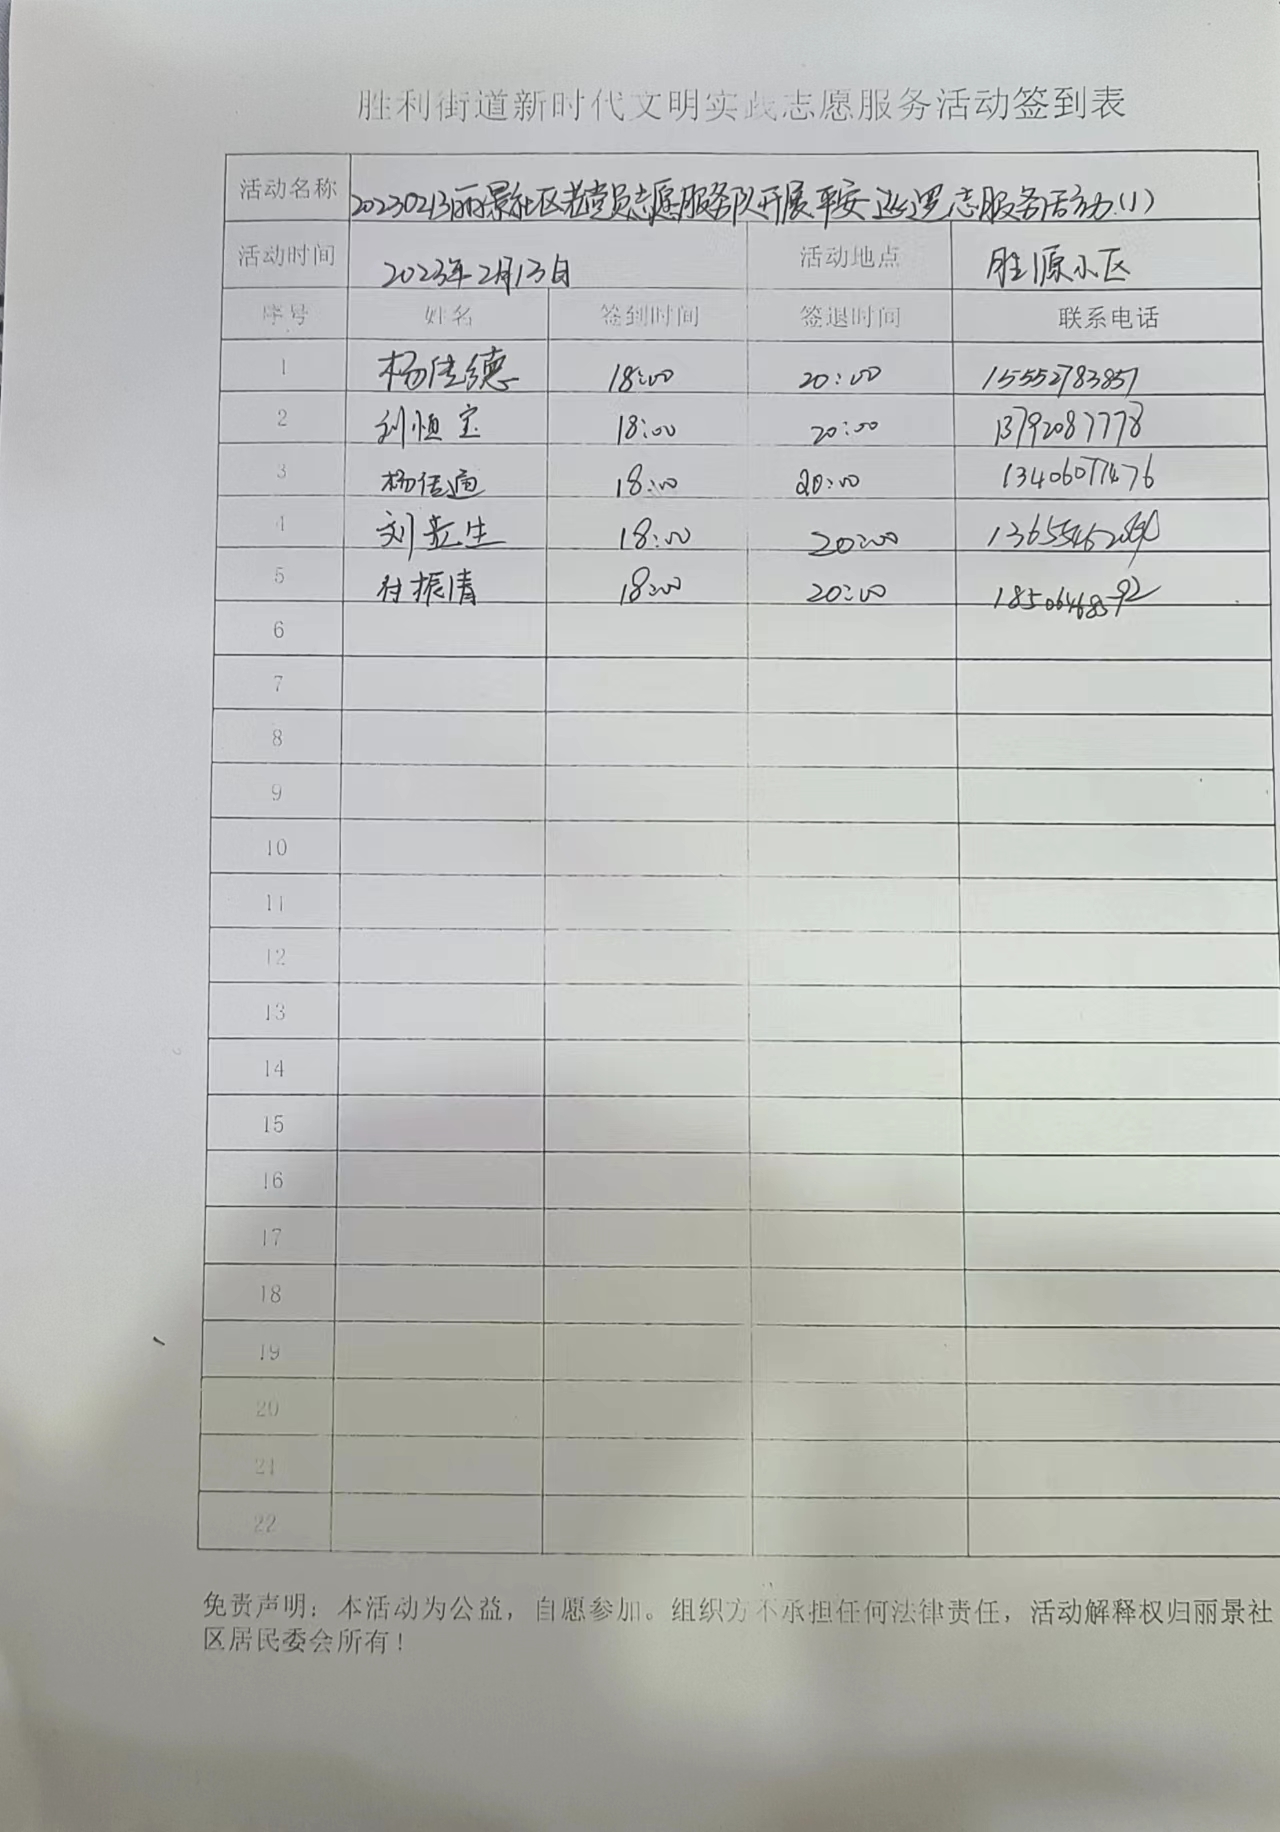 胜利街道新时代文明实践志愿服务活动签到表
活动名称 20230213丽景社区老党员志愿服务队开展平安巡逻志服务活动(1)
活动时间 2023年2月13日 活动地点 胜源小区
序号 姓名 签到时间 签退时间 联系电话
1 杨传德 18:00 20:00 15552783857
2 刘恒宝 18:00 20:00 13792087778
3 杨传通 18:00 20:00
4 18:00 20:00
5 付振清 18:00 20:00
6
7
8
9
10
11
12
13
14
15
16
17
18
19
20
21
22
免责声明：本活动为公益，自愿参加。组织方不承担任何法律责任，活动解释权归丽景社
区居民委会所有！